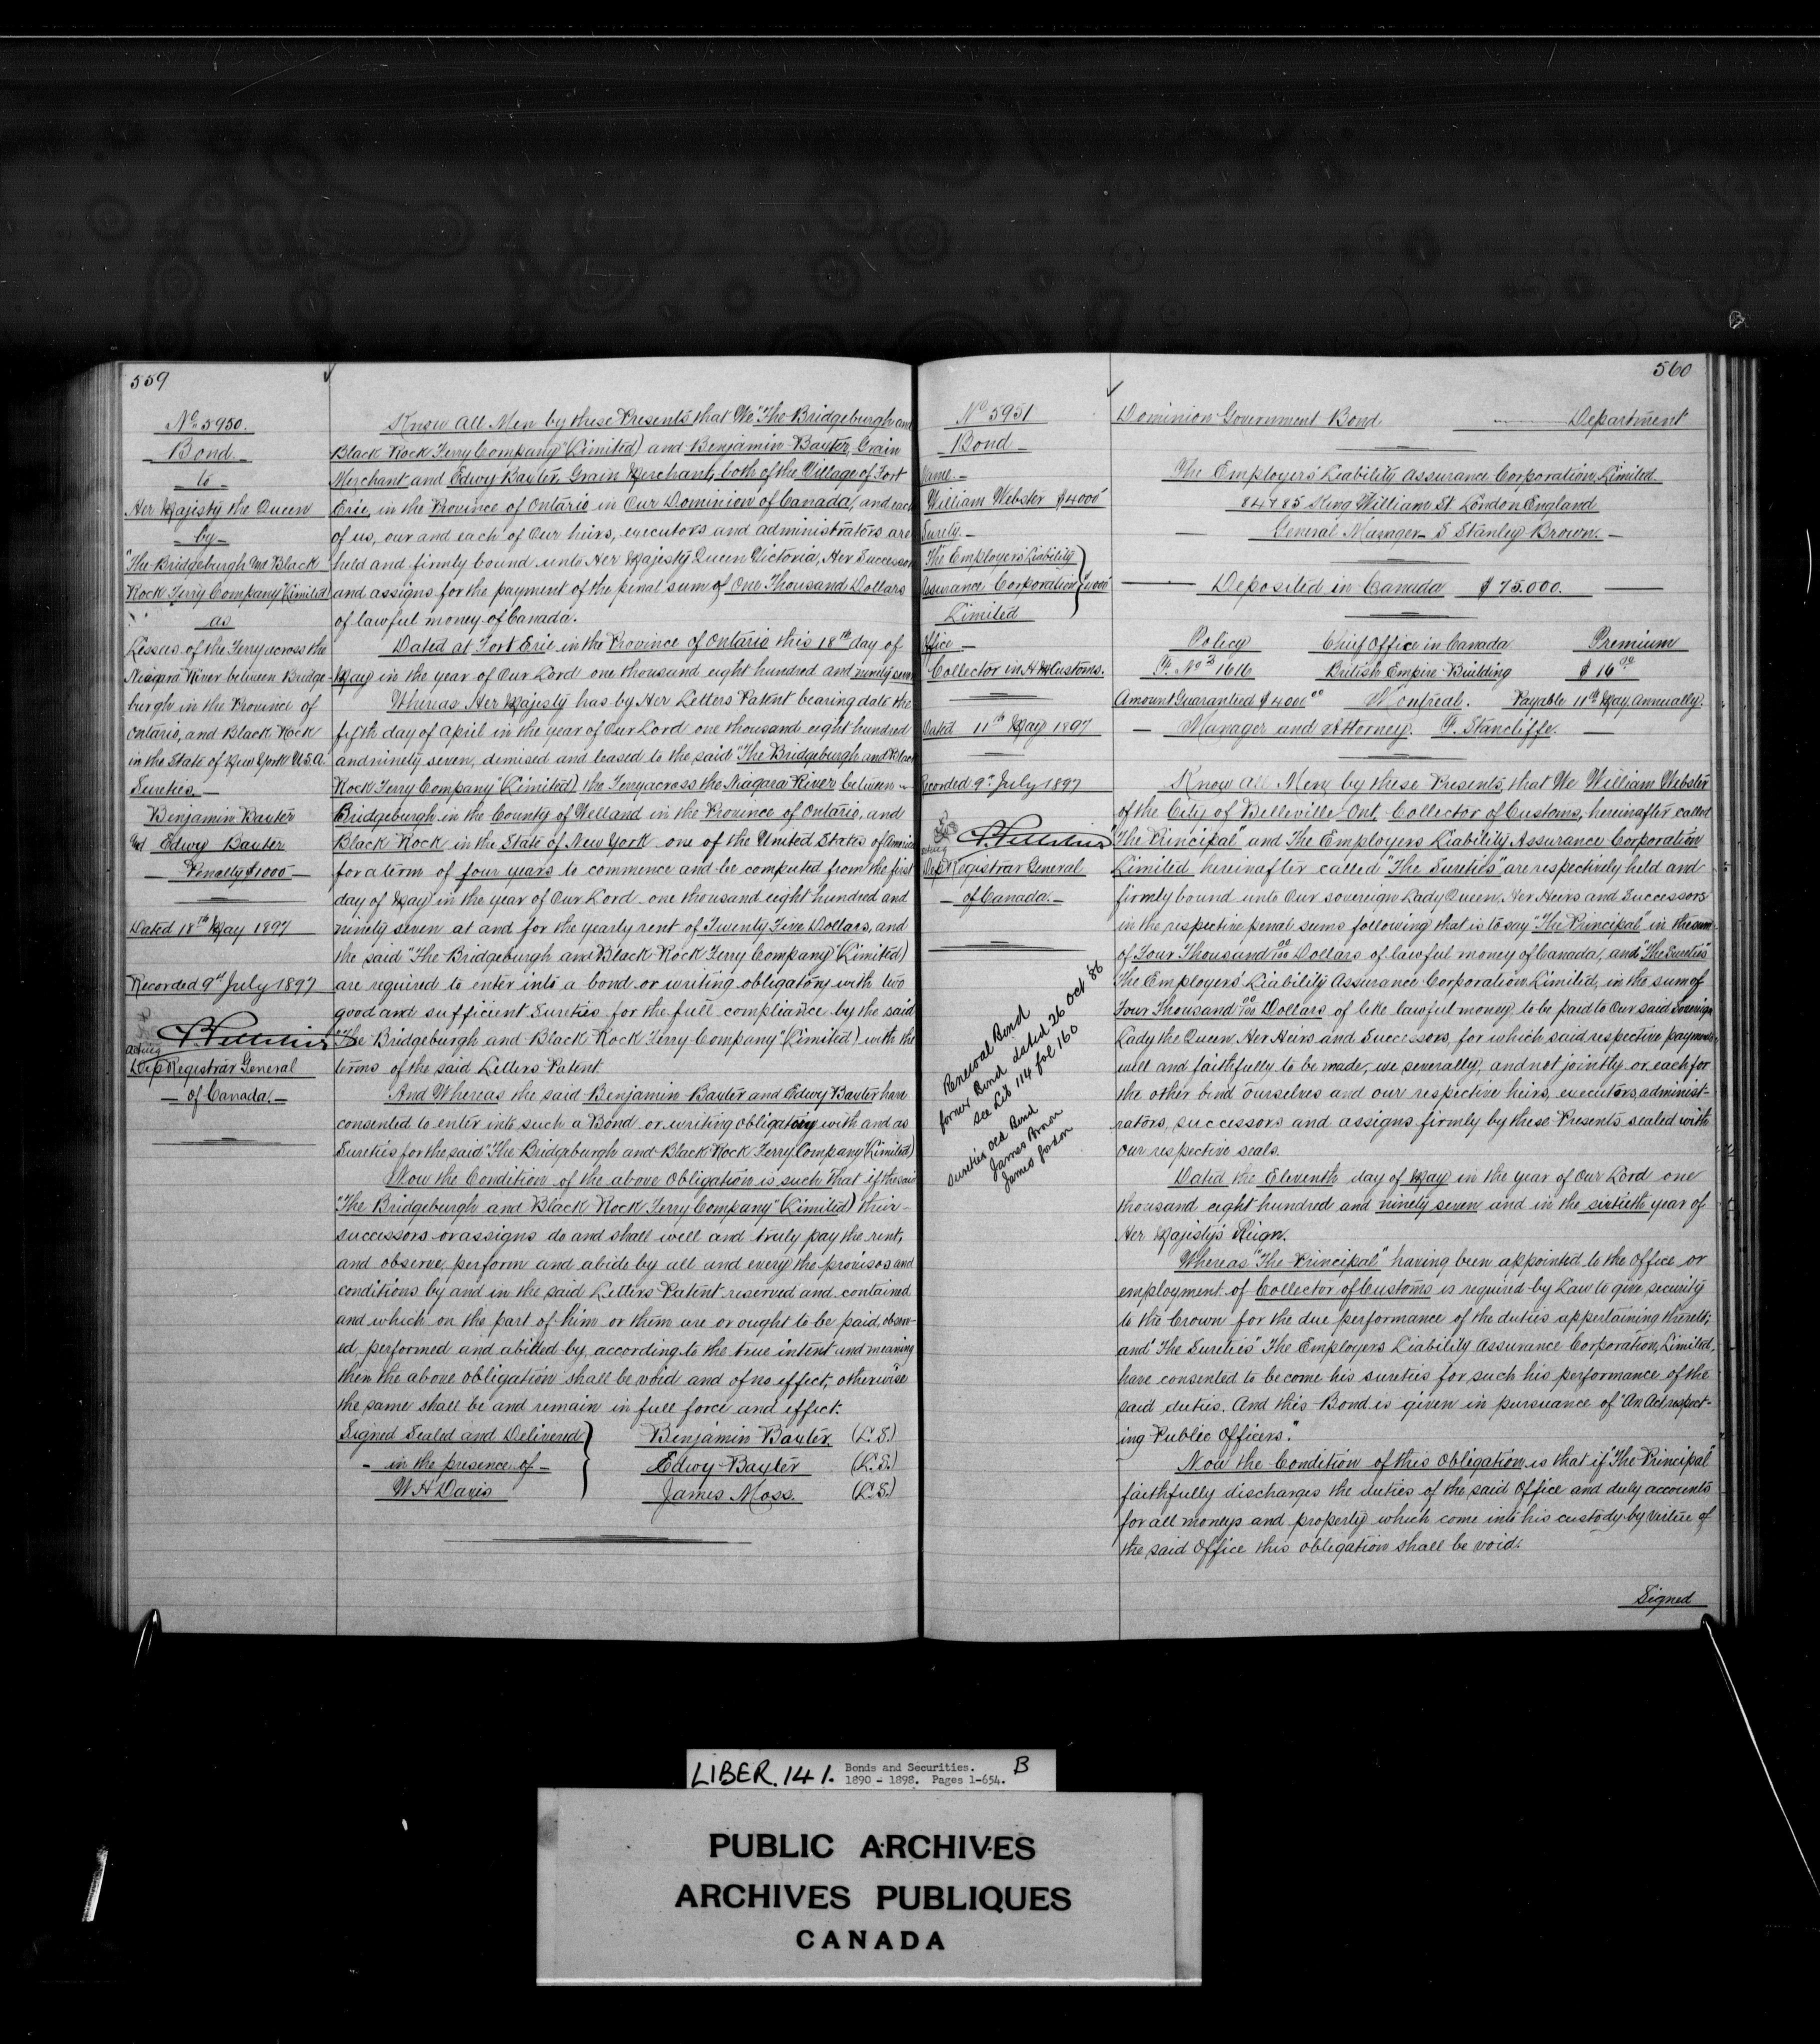 559
No 5950.
Bond
to
Her Majesty the Queen
by
"The Bridgeburgh and Black
Rock Ferry Company" (Limited)
as
Lessees of the Ferry across the
Niagara River between Bridge-
burgh in the Province of
Ontario, and Black Rock
in the State of New York U.S.A.
Sureties.
Benjamin Baxter
and Edwy Baxter
Penalty $1000
Dated 18th May 1897
Recorded 9th July 1897
acting
Dep Registrar General
of Canada.
Know all Men by these Presents that We "The Bridgeburgh and
Black Rock Ferry Company" (Limited) and Benjamin Baxter, Grain
Merchant and Edwy Baxter, Grain Merchant, both of the Village of Fort
Erie, in the Province of Ontario in Our Dominion of Canada, and each
of us, our and each of Our heirs, executors and administrators are
held and firmly bound unto Her Majesty Queen Victoria, Her Successors
and assigns for the payment of the penal sum of One Thousand Dollars
of lawful money of Canada.
Dated at Fort Erie in the Province of Ontario this 18th day of
May in the year of Our Lord one thousand eight hundred and ninety seven
Whereas Her Majesty has by Her Letters Patent bearing date the
fifth day of April in the year of Our Lord one thousand eight hundred
and ninety seven, demised and leased to the said "The Bridgeburgh and Black
Rock Ferry Company" (Limited) the Ferry across the Niagara River between
Bridgeburgh in the County of Welland in the Province of Ontario, and
Black Rock in the State of New York one of the United States of America
for a term of four years to commence and be computed from the first
day of May in the year of Our Lord one thousand eight hundred and
ninety seven at and for the yearly rent of Twenty Five Dollars, and
the said "The Bridgeburgh and Black Rock Ferry Company" (Limited)
are required to enter into a bond or writing obligatory with two
good and sufficient Sureties for the full compliance by the said
"The Bridgeburgh and Black Rock Ferry Company" (Limited) with the
terms of the said Letters Patent.
And Whereas the said Benjamin Baxter and Edwy Baxter have
consented to enter into such a Bond or writing obligatory with and as
Sureties for the said "The Bridgeburgh and Black Rock Ferry Company (Limited)
Now the Condition of the above Obligation is such that if the said
"The Bridgeburgh and Black Rock Ferry Company" (Limited) their
successors or assigns do and shall well and truly pay the rent,
and observe, perform and abide by all and every the provisos and
conditions by and in the said Letters Patent reserved and contained
and which on the part of him or them are or ought to be paid, observ-
ed, performed and abided by, according to the true intent and meaning
then the above obligation shall be void and of no effect, otherwise
the same shall be and remain in full force and effect.
Signed Sealed and Delivered Benjamin Baxter (L.S.)
in the presence of Edwy Baxter (L.S.)
W H Davis James Moss. (L.S.)
560
No 5951
Bond
Name.
William Webster $4000
Surety.
The Employers Liability
Assurance Corporation $4000
Limited
Office
Collector in H M Customs.
Dated 11th May 1897
Recorded 9th July 1897
acting
Dep Registrar General
of Canada.
Renewal Bond
former Bond dated 26 Oct '86
see Lib 114 fol 160
Sureties old Bond
James Brown
James
Dominion Government Bond Department
The Employers' Liability Assurance Corporation Limited
84 & 85 King William St London England
General Manager S Stanley Brown.
Deposited in Canada $75.000.
Policy Chief Office in Canada Premium
No 1616 British Empire Building $16.00
Amount Guaranteed $4000.00 Montreal. Payable 11th May Annually.
Manager and Attorney. F. Stancliffe.
Know all Men by these Presents, that We William Webster
of the City of Belleville Ont. Collector of Customs, hereinafter called
"The Principal" and The Employers Liability Assurance Corporation
Limited hereinafter called "The Sureties" are respectively held and
firmly bound unto Our sovereign Lady Queen, Her Heirs and Successors
in the respective penal sums following that is to say "The Principal" in the sum
of Four Thousand 00/100 Dollars of lawful money of Canada, and "The Sureties"
The Employers' Liability Assurance Corporation Limited, in the sum of
Four Thousand 00/100 Dollars of like lawful money to be paid to Our said Sovereign
Lady the Queen, Her Heirs and Successors, for which said respective payments,
well and faithfully to be made, we severally, and not jointly or each for
the other bind ourselves and our respective heirs, executors, administ-
rators, successors and assigns firmly by these Presents sealed with
our respective seals.
Dated the Eleventh day of May in the year of Our Lord one
thousand eight hundred and ninety seven and in the sixtieth year of
Her Majesty's Reign.
Whereas "The Principal" having been appointed to the Office or
employment of Collector of Customs is required by Law to give security
to the Crown for the due performance of the duties appertaining thereto;
and "The Sureties" The Employers Liability Assurance Corporation, Limited,
have consented to become his sureties for such his performance of the
said duties. And this Bond is given in pursuance of "An Act respect-
ing Public Officers".
Now the Condition of this Obligation is that if "The Principal"
faithfully discharges the duties of the said Office and duly accounts
for all moneys and property which come into his custody by virtue of
the said Office this obligation shall be void.
Signed
LIBER. 141. Bonds and Securities. B
1890 - 1898. Pages 1-654.
PUBLIC ARCHIVES
ARCHIVES PUBLIQUES
CANADA